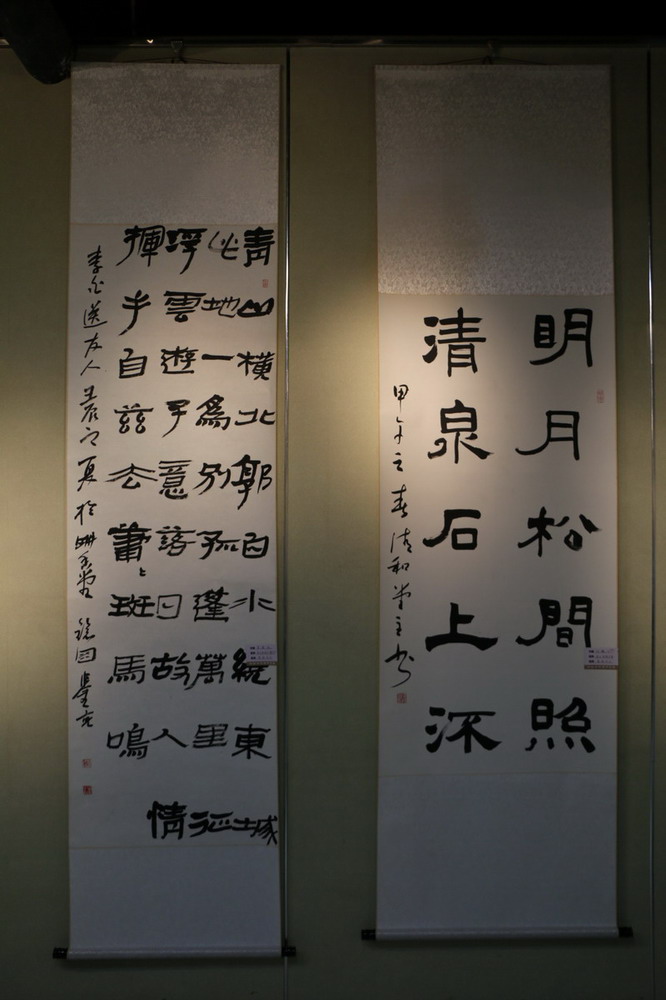 明月松間照
清泉石上流
甲午之春清和堂主書
青山橫北郭白水繞東城
此地一為別孤蓬萬里征
浮雲遊子意落日故人情
揮手自茲去蕭〻班馬鳴
李白送友人壬辰之夏於